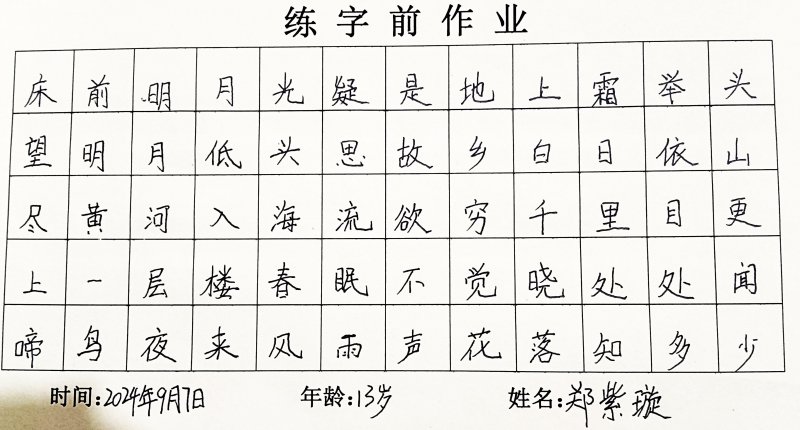 练字前作业
床前明月光疑是地上霜举头
望明月低头思故乡白日依山
尽黄河入海流欲穷千里目更
上一层楼春眠不觉晓处处闻
啼鸟夜来风雨声花落知多少
时间:2024年9月7日 年龄:13岁 姓名:郑紫璇